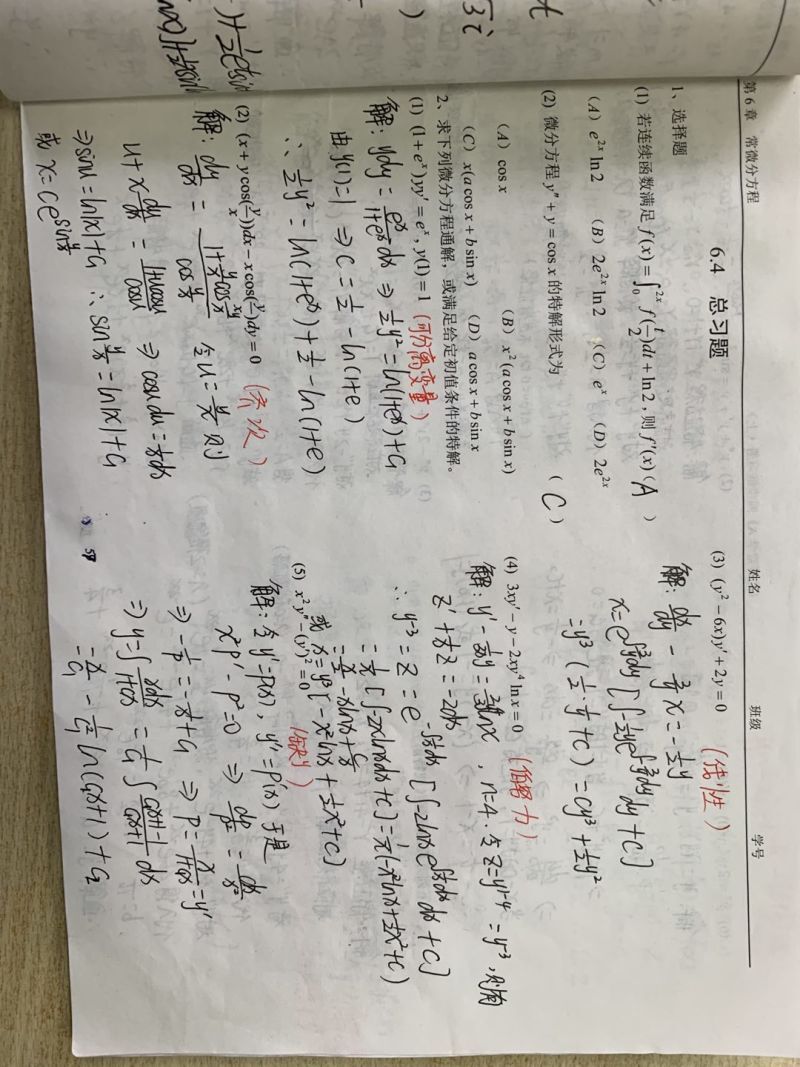 第 6 章 常微分方程 姓名 班级 学号
6.4 总习题
1、选择题
(1) 若连续函数满足 f(x) = ∫₀^{2x} f(t/2)dt + ln 2, 则 f'(x) ( A )
(A) e^{2x} ln 2 (B) 2e^{2x} ln 2 (C) e^x (D) 2e^{2x}
(2) 微分方程 y'' + y = cos x 的特解形式为 ( C )
(A) cos x (B) x²(a cos x + b sin x)
(C) x(a cos x + b sin x) (D) a cos x + b sin x
2、求下列微分方程通解，或满足给定初值条件的特解。
(1) (1 + e^x)yy' = e^x, y(1) = 1 (可分离变量)
解: ydy = e^x/(1+e^x) dx ⇒ ½y² = ln(1+e^x) + C₁
由 y(1)=1 ⇒ C = ½ - ln(1+e)
∴ ½y² = ln(1+e^x) + ½ - ln(1+e)
(2) (x + y cos(y/x))dx - x cos(y/x)dy = 0 (齐次)
解: dy/dx = (1 + y/x cos y/x)/(cos y/x) 令 u = y/x 则
u + x du/dx = (1+ucosu)/cosu ⇒ cosu du = 1/x dx
⇒ sinu = ln|x| + C₁ ∴ sin y/x = ln|x| + C₁
或 x = Ce^{sin y/x}
(3) (y² - 6x)y' + 2y = 0 (线性)
解: dx/dy - 3/y x = -½y
x = e^{∫3/y dy} [∫ -½y e^{-∫3/y dy} dy + C]
= y³ (½ · 1/y + C) = Cy³ + ½y²
(4) 3xy' - y - 2xy⁴ ln x = 0 (伯努力)
解: y' - 1/3x y = 2/3 lnx y⁴, n=4. 令 z = y^{1-4} = y^{-3}, 则有
z' + 1/x z = -2lnx
∴ y^{-3} = z = e^{-∫1/x dx} [∫ -2lnx e^{∫1/x dx} dx + C]
= 1/x [∫ -2x lnx dx + C] = 1/x (-x²lnx + ½x² + C)
= x/2 - xlnx + C/x
或 x = y³[-x²lnx + ½x² + C]
(5) x²y'' - (y')² = 0 (缺y)
解: 令 y' = p(x), y'' = p'(x) 于是
x²p' - p² = 0 ⇒ dp/p² = dx/x²
⇒ -1/p = -1/x + C₁ ⇒ p = x/(1+C₁x) = y'
⇒ y = ∫ xdx/(1+C₁x) = 1/C₁ ∫ (C₁x+1-1)/(C₁x+1) dx
= x/C₁ - 1/C₁² ln(C₁x+1) + C₂